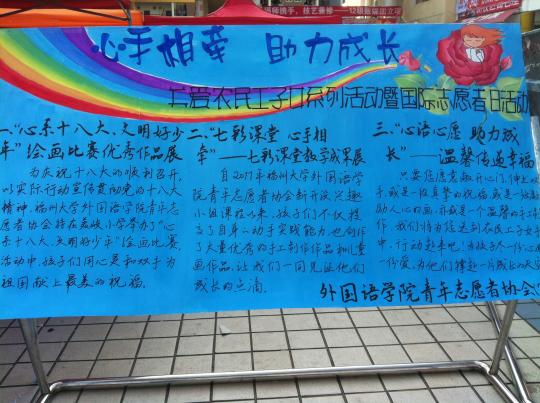 心手相牵 助力成长
关爱农民工子女系列活动暨国际志愿者日活动
一、“心系十八大、文明好少
年”绘画比赛优秀作品展
为庆祝十八大的顺利召开,
以实际行动宣传贯彻党的十八大
精神,福州大学外国语学院青年志
愿者协会特在嘉峡小学举办了“心
系十八大,文明好少年”绘画比赛,
活动中,孩子们用心灵和双手为
祖国献上最美的祝福。
二、“七彩课堂 心手相
牵”——七彩课堂教学成果展
自2011年福州大学外国语学
院青年志愿者协会新开设兴趣
小组课程以来,孩子们不仅提
高了自身的动手实践能力,也创作
了大量优秀的手工制作作品和儿童
画作品,让我们一同见证他们
成长的点滴。
三、“心语心愿 助力成
长”——温馨传递幸福
只要您愿意敞开心门,伸出双
手,或是一段真挚的祝福,或是一次
助人心的画,亦或是一个温馨的手工制
作,我们将为您送到农民工子女手
中,行动起来吧!为孩子们一份心
一份爱,为他们撑起一片成长的天
外国语学院青年志愿者协会